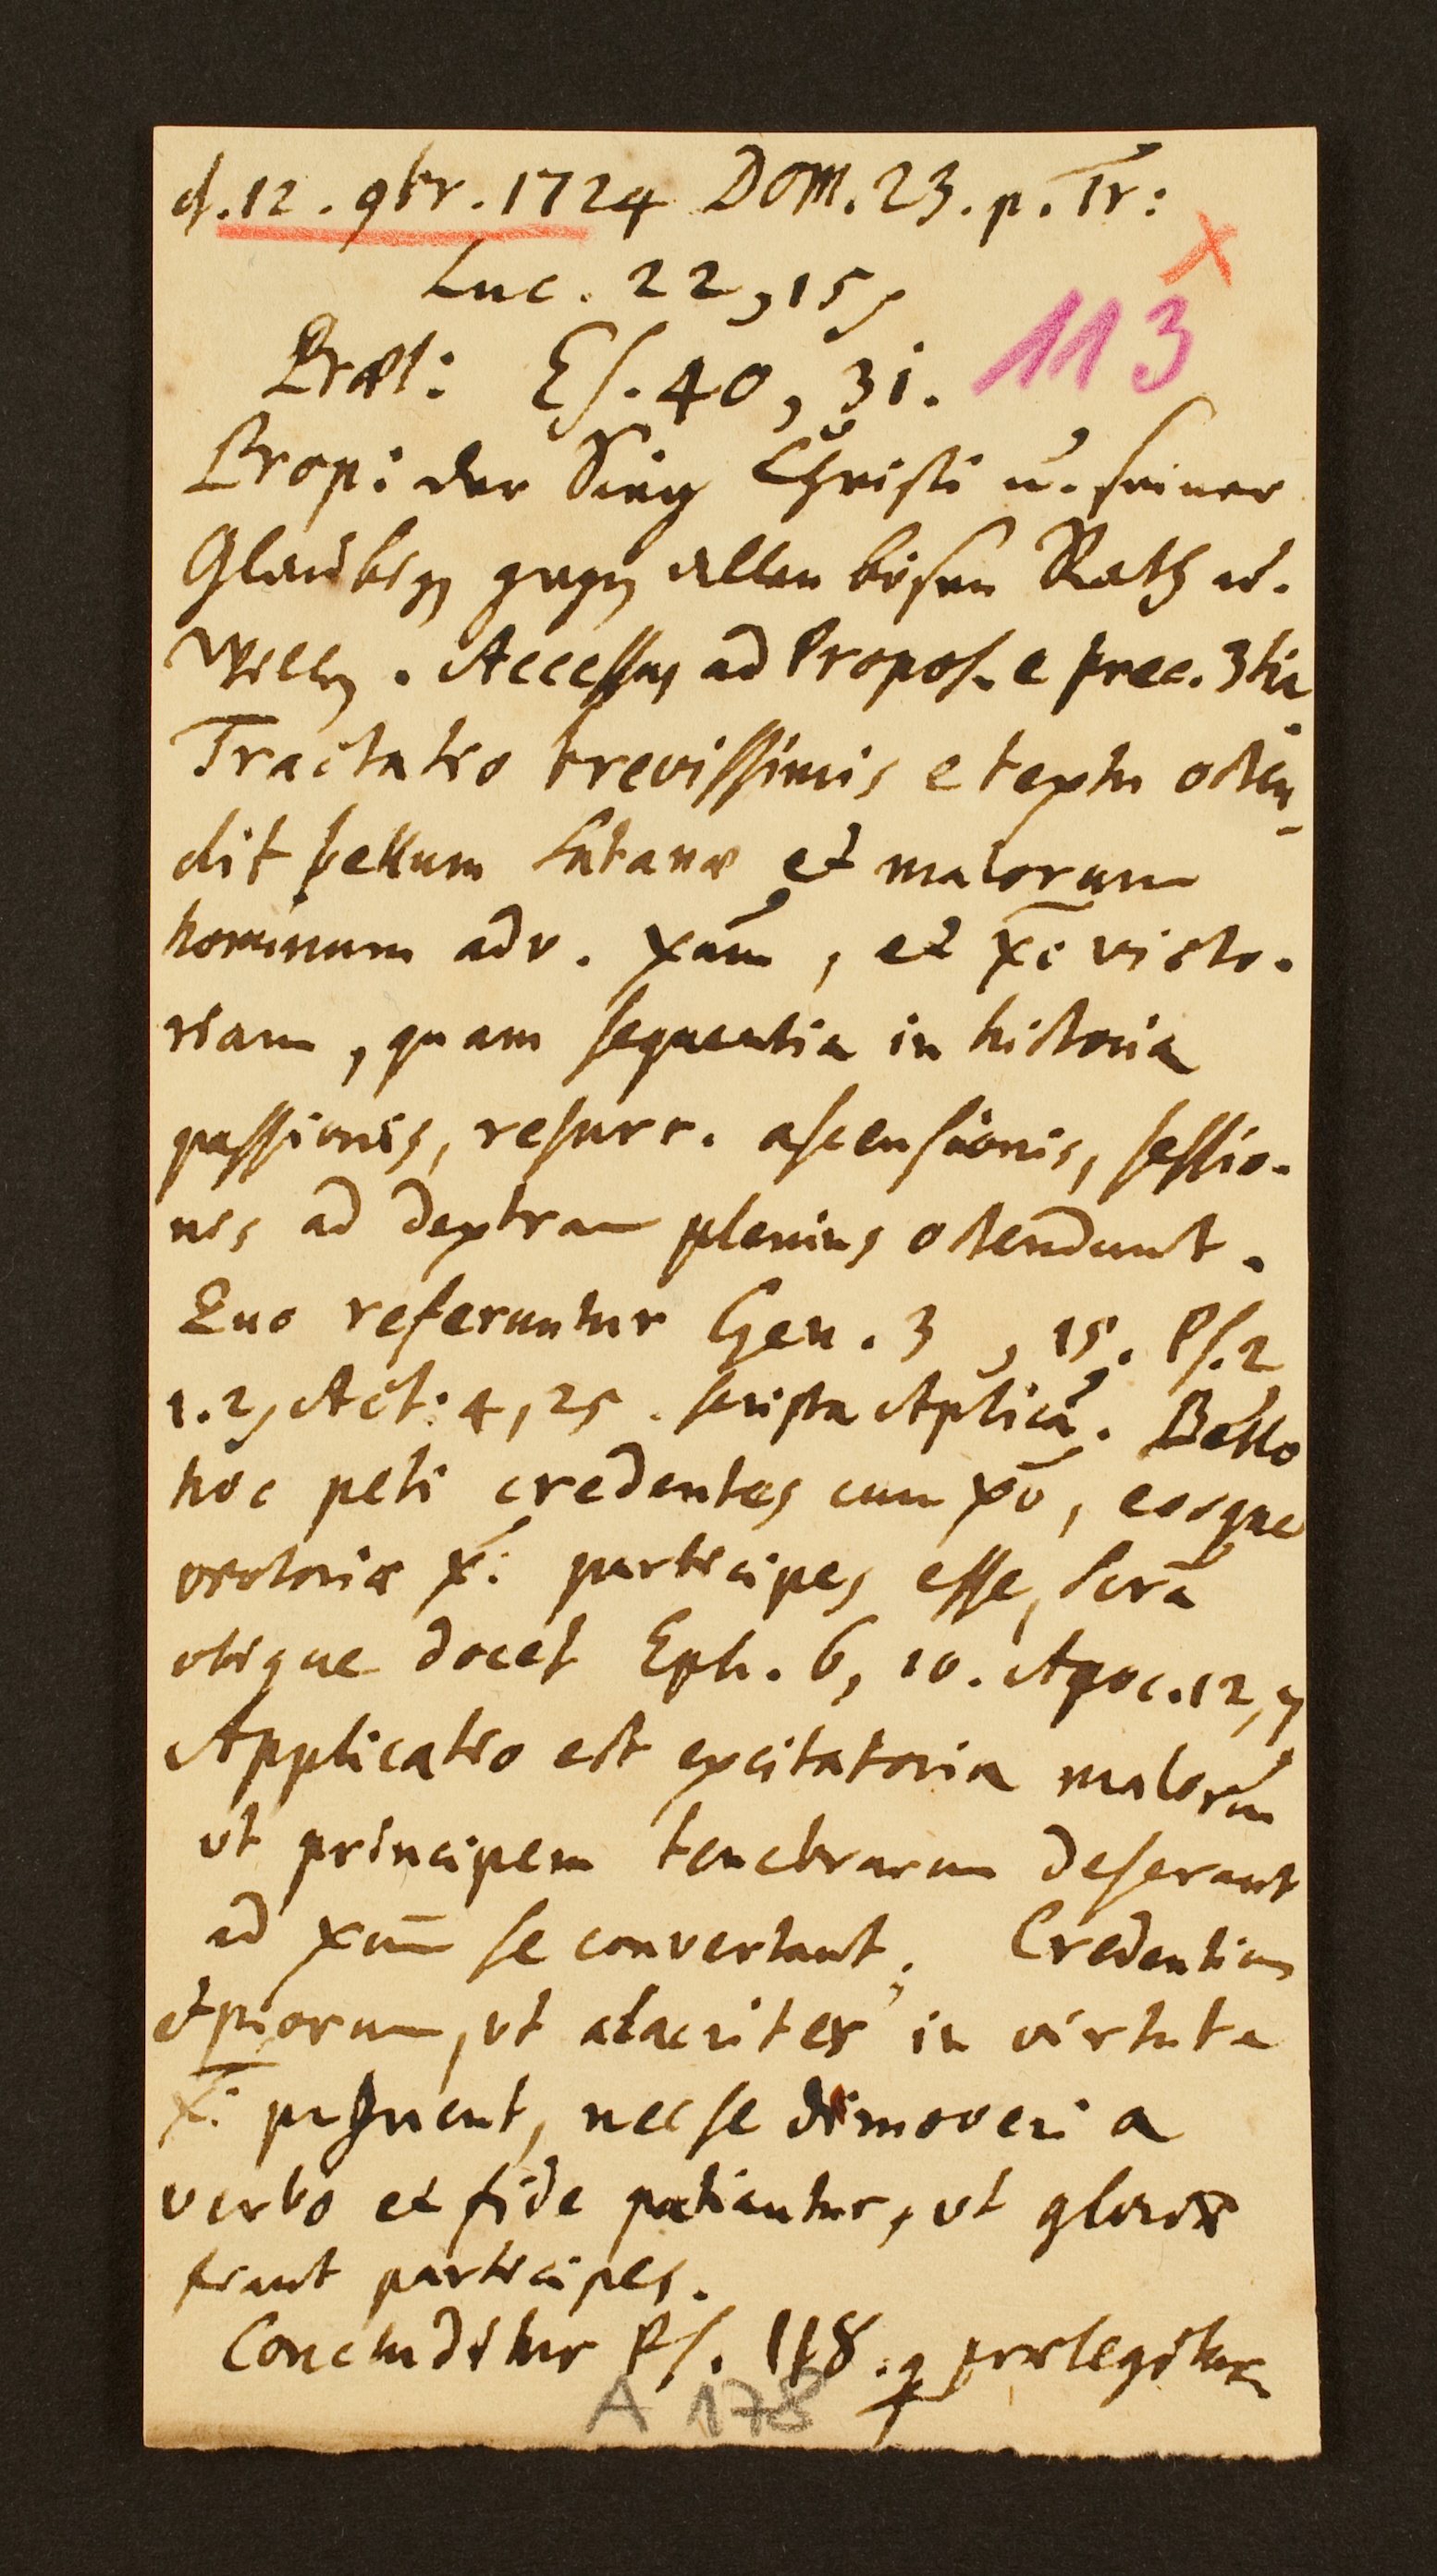 d. 12. 9br. 1724 Dom. 23. p. Tr:
x
Luc. 22, 15,
113
Præl: Es. 40, 31.
Prop: der Sieg Christi u. seiner
Glaubigen gegen allen bösen Rath u.
Willen. Accessus ad Propos. e prec. 3tia
Tractatio brevissimis e textu osten-
dit bellum Satanæ et malorum
hominum adv. Xum, et Xi victo-
riam, quam sequentia in historia
passionis, resurr. ascensionis, sessio-
nis ad dextram plenius ostendunt.
Quo referuntur Gen. 3, 15. Ps. 2
1. 2, Act: 4, 25. scripta Aplica. Bello
hoc peti credentes cum Xo, eosque
victoriæ X: participes esse, Scra
ubique docet Eph. 6, 10. Apoc. 12, 7
Applicatio est excitatoria malorum
ut principem tenebrarum deserant
ad Xum se convertant; Credentium
et piorum, ut alacriter in virtute
X: pugnent, nec se dimoveri a
verbo et fide patiantur, ut gloriæ
fiant participes.
Concluditur Ps. 118. q prælegitur
A 178